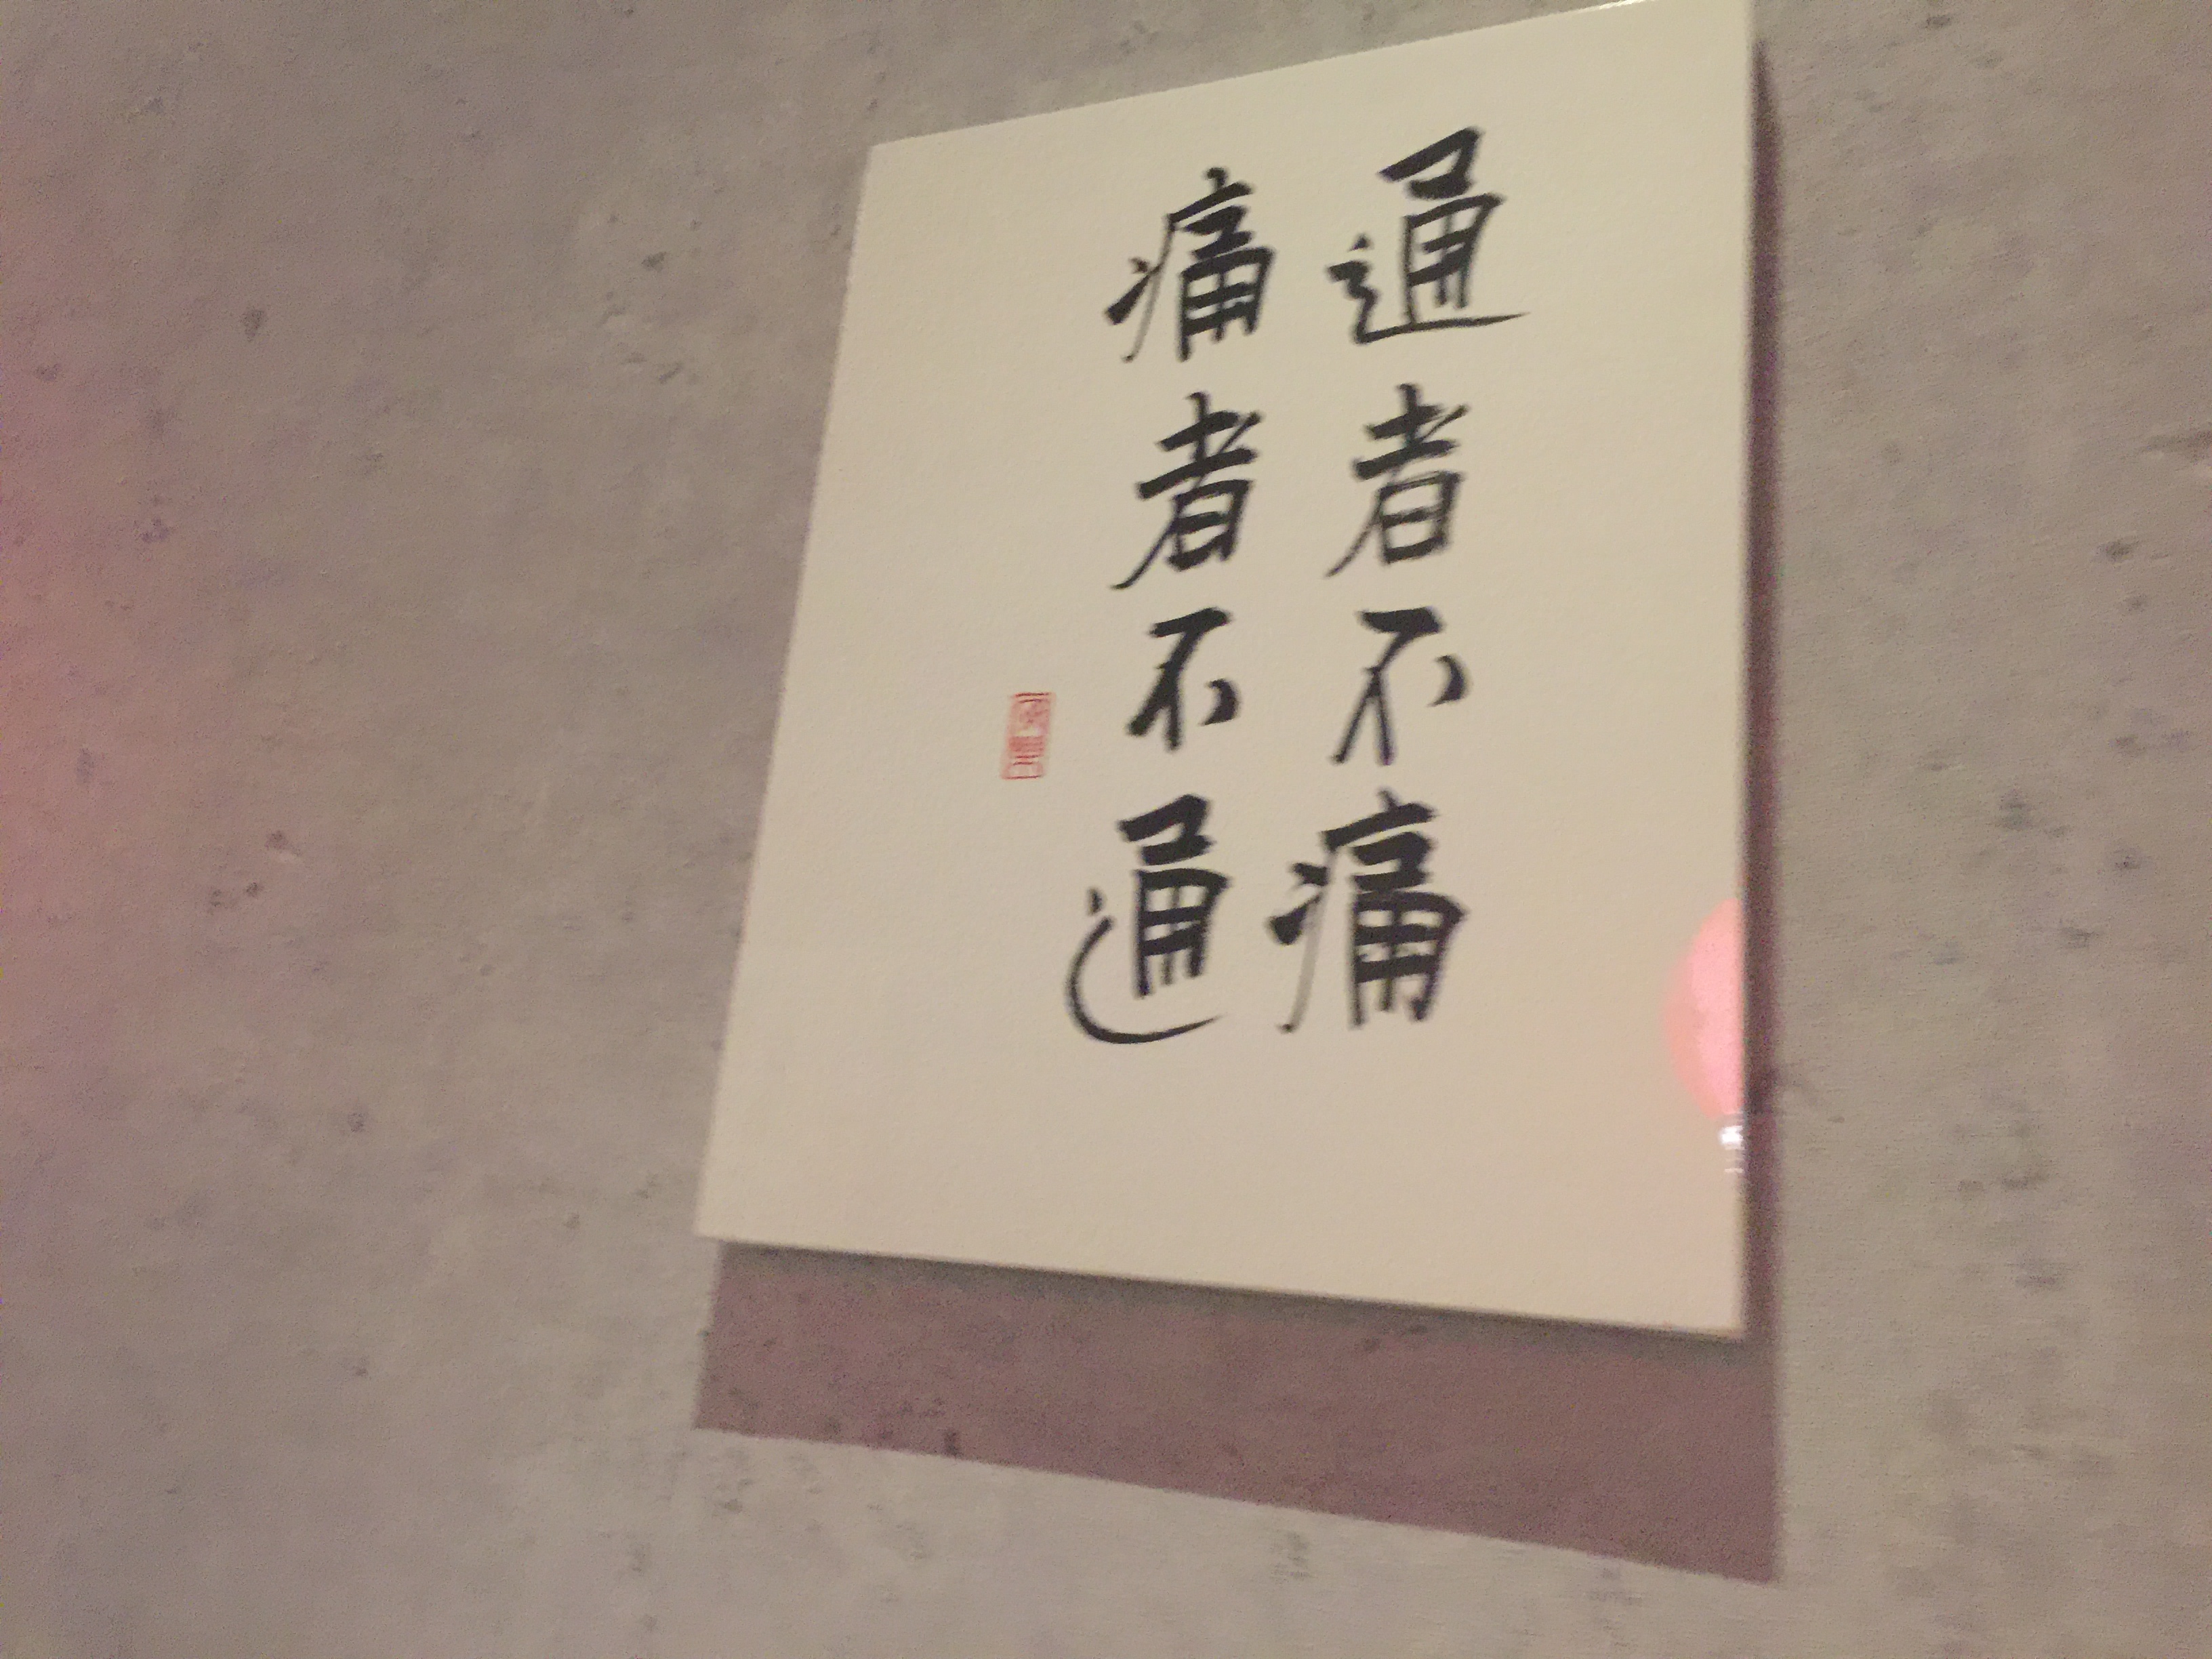 通者不痛
痛者不通